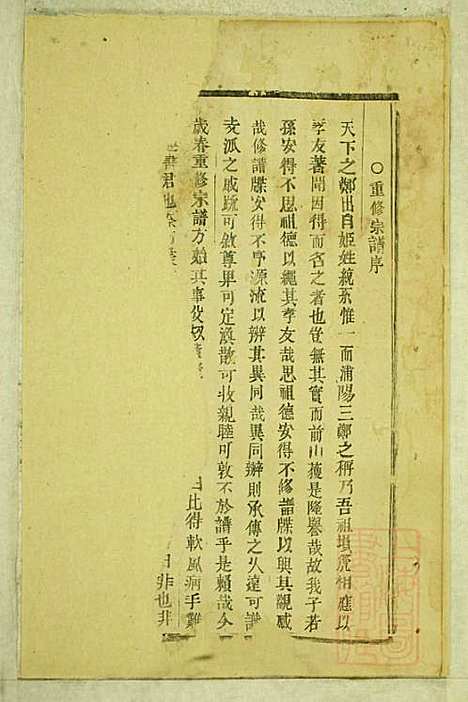 ○重修宗譜序
天下之鄭出自姬姓統系惟一而浦陽三鄭之稱乃吾祖塤箎相應以
孝友著聞因得而名之者也豈無其實而前山獲是隆譽哉故我子若
孫安得不思祖德以繩其孝友哉思祖德安得不修譜牒以興其觀感
哉修譜牒安得不序源流以辨其異同哉異同辨則承傳之久遠可譜
支派之戚疏可敘尊卑可定渙散可收親睦可敦不於譜乎是賴哉今
歲春重修宗譜方始其事 比得軟風病手難
書君也 日非也非